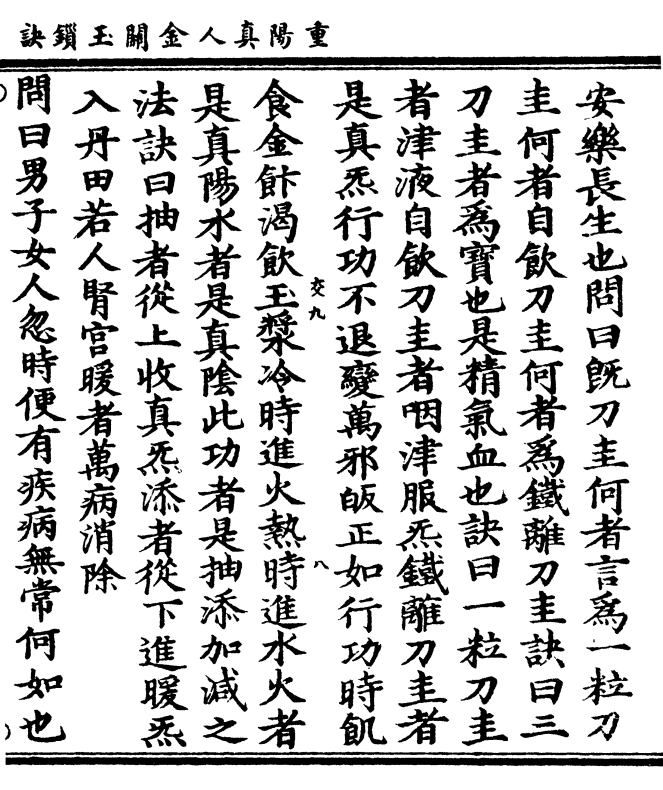 重陽真人金關玉鎖訣
安樂長生也問曰既刀圭何者言爲一粒刀
圭何者自飲刀圭何者爲鐵離刀圭訣曰三
刀圭者爲寶也是精氣血也訣曰一粒刀圭
者津液自飲刀圭者咽津服炁鐵離刀圭者
是真炁行功不退變萬邪皈正如行功時飢
食金飰渴飲玉漿冷時進火熱時進水火者
交九
八
是真陽水者是真陰此功者是抽添加減之
法訣曰抽者從上收真炁添者從下進暖炁
入丹田若人腎宫暖者萬病消除
問曰男子女人忽時便有疾病無常何如也